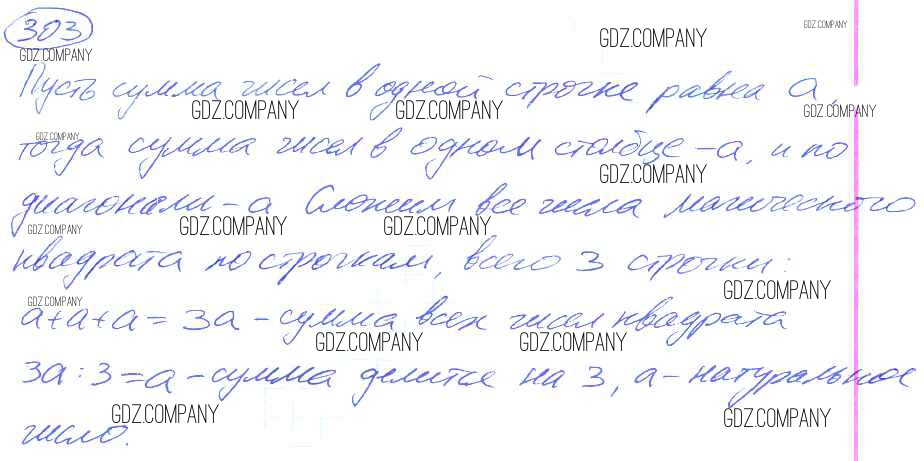 303
GDZ.COMPANY
GDZ.COMPANY
GDZ.COMPANY
Пусть сумма чисел в одной строчке равна а,
GDZ.COMPANY GDZ.COMPANY GDZ.COMPANY
GDZ.COMPANY
тогда сумма чисел в одном столбце - а, и по
GDZ.COMPANY
диагонали - а Сложим все числа магического
GDZ.COMPANY GDZ.COMPANY GDZ.COMPANY
квадрата по строчкам, всего 3 строчки:
GDZ.COMPANY GDZ.COMPANY
а + а + а = 3а - сумма всех чисел квадрата
GDZ.COMPANY GDZ.COMPANY
3а : 3 = а - сумма делится на 3, а - натуральное
GDZ.COMPANY GDZ.COMPANY
число.